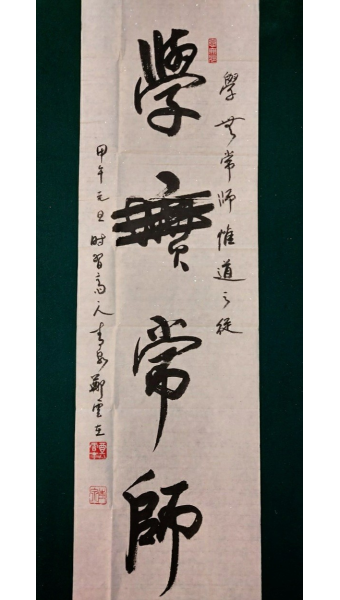 學無常師惟道之從
學無常師
甲午元旦時習高人青島鄭雲在